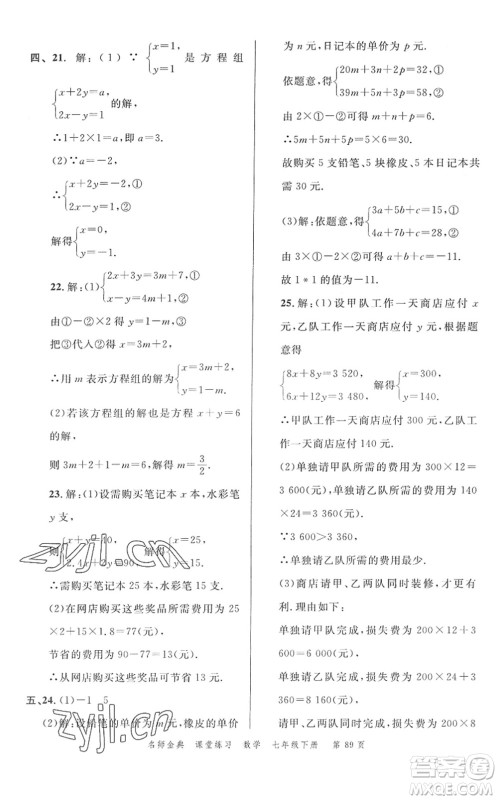 四、21. 解:(1)∵{x=1, y=1 是方程组
{x+2y=a, 2x-y=1 的解,
∴1+2×1=a,即 a=3.
(2)∵a=-1,
∴{x+2y=-1,① 2x-y=1,②
解得{x=0, y=-1.
22. 解:(1){2x+3y=3m+7,① x-y=4m+1,②
由①-②×2 可得 y=1-m,③
把③代入②可得 x=3m+2,
∴用 m 表示方程组的解为{x=3m+2, y=1-m.
(2)若该方程组的解也是方程 x+y=6
的解,
则 3m+2+1-m=6,解得 m=3/2.
23. 解:(1)设需购买笔记本 x 本,水彩笔
y 支,
则{x+y=40, 2.4x+2y=90, 解得{x=25, y=15.
∴需购买笔记本 25 本,水彩笔 15 支.
(2)在网店购买这些奖品的费用为 25
×2+15×1.8=77(元),
节省的费用为 90-77=13(元).
∴从网店购买这些奖品可节省 13 元.
五、24. (1)-1 5
(2)解:设铅笔的单价为 m 元,橡皮的单价
为 n 元,日记本的单价为 p 元,
依题意,得{20m+3n+2p=32,① 39m+5n+3p=58,②
由①×2-②可得 m+n+p=6.
∴5m+5n+5p=30.
故购买 5 支铅笔、5 块橡皮、5 本日记本共
需 30 元.
(3)解:依题意,得{3a+5b+c=15,① 4a+7b+c=28,②
由①×3-②×2 可得 a+b+c=-11.
故 1*1 的值为-11.
25. 解:(1)设甲队工作一天商店应付 x
元,乙队工作一天商店应付 y 元.根据题
意得
{8x+8y=3 520, 6x+12y=3 480, 解得{x=300, y=140.
∴甲队工作一天商店应付 300 元,乙队工
作一天商店应付 140 元.
(2)单独请甲队所需的费用为 300×12=
3 600(元),
单独请乙队所需的费用为 140×24=
3 360(元).
∵3 600>3 360,
∴单独请乙队所需费用少.
(3)商店请甲、乙两队同时装修,才更有
利.理由如下:
单独请甲队完成,损失费为 200×12=
2 400(元),
单独请乙队完成,损失费为 200×24=
4 800(元),
请甲、乙两队同时完成,损失费为 200×8
名师金典 课堂练习 数学 七年级下册 第 89 页
zyjl.cn
zyjl.cn
答案圈